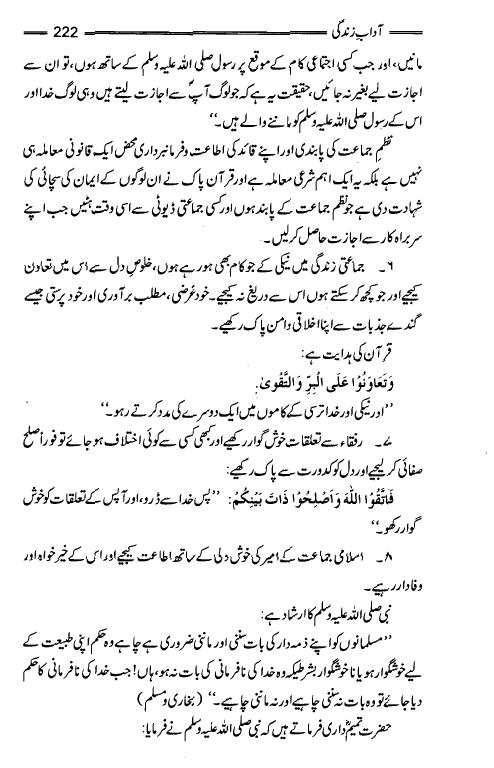 آدابِ زندگی 222
مانیں، اور جب کسی اجتماعی کام کے موقع پر رسول صلی اللہ علیہ وسلم کے ساتھ ہوں، تو ان سے
اجازت لیے بغیر نہ جائیں، حقیقت یہ ہے کہ جو لوگ آپؐ سے اجازت لیتے ہیں وہی لوگ خدا اور
اس کے رسول صلی اللہ علیہ وسلم کو ماننے والے ہیں۔‘‘
نظمِ جماعت کی پابندی اور اپنے قائد کی اطاعت و فرمانبرداری محض ایک قانونی معاملہ ہی
نہیں ہے بلکہ یہ ایک اہم شرعی معاملہ ہے اور قرآن پاک نے ان لوگوں کے ایمان کی سچائی کی
شہادت دی ہے جو نظم جماعت کے پابند ہوں اور کسی جماعتی ڈیوٹی سے اسی وقت ہٹیں جب اپنے
سربراہ کار سے اجازت حاصل کرلیں۔
۶۔ جماعتی زندگی میں نیکی کے جو کام بھی ہو رہے ہوں، خلوصِ دل سے اس میں تعاون
کیجیے اور جو کچھ کر سکتے ہوں اس سے دریغ نہ کیجیے۔ خود غرضی، مطلب برآوری اور خود پرستی جیسے
گندے جذبات سے اپنا اخلاقی دامن پاک رکھیے۔
قرآن کی ہدایت ہے:
وَتَعَاوَنُوْا عَلَى الْبِرِّ وَالتَّقْوىٰ۔
’’اور نیکی اور خدا ترسی کے کاموں میں ایک دوسرے کی مدد کرتے رہو۔‘‘
۷۔ رفقاء سے تعلقات خوش گوار رکھیے اور کبھی کسی سے کوئی اختلاف ہو جائے تو فوراً صلح
صفائی کر لیجیے اور دل کو کدورت سے پاک رکھیے:
فَاتَّقُوا اللّٰهَ وَاَصْلِحُوْا ذَاتَ بَيْنِكُمْ: ’’پس خدا سے ڈرو، اور آپس کے تعلقات کو خوش
گوار رکھو۔‘‘
۸۔ اسلامی جماعت کے امیر کی خوش دلی کے ساتھ اطاعت کیجیے اور اس کے خیر خواہ اور
وفادار رہیے۔
نبی صلی اللہ علیہ وسلم کا ارشاد ہے:
’’مسلمانوں کو اپنے ذمہ دار کی بات سننی اور ماننی ضروری ہے چاہے وہ حکم اپنی طبیعت کے
لیے خوشگوار ہو یا نا خوشگوار بشرطیکہ وہ خدا کی نافرمانی کی بات نہ ہو، ہاں! جب خدا کی نافرمانی کا حکم
دیا جائے تو وہ بات نہ سننی چاہیے اور نہ ماننی چاہیے۔‘‘ (بخاری و مسلم)
حضرت تمیمؓ داری فرماتے ہیں کہ نبی صلی اللہ علیہ وسلم نے فرمایا: